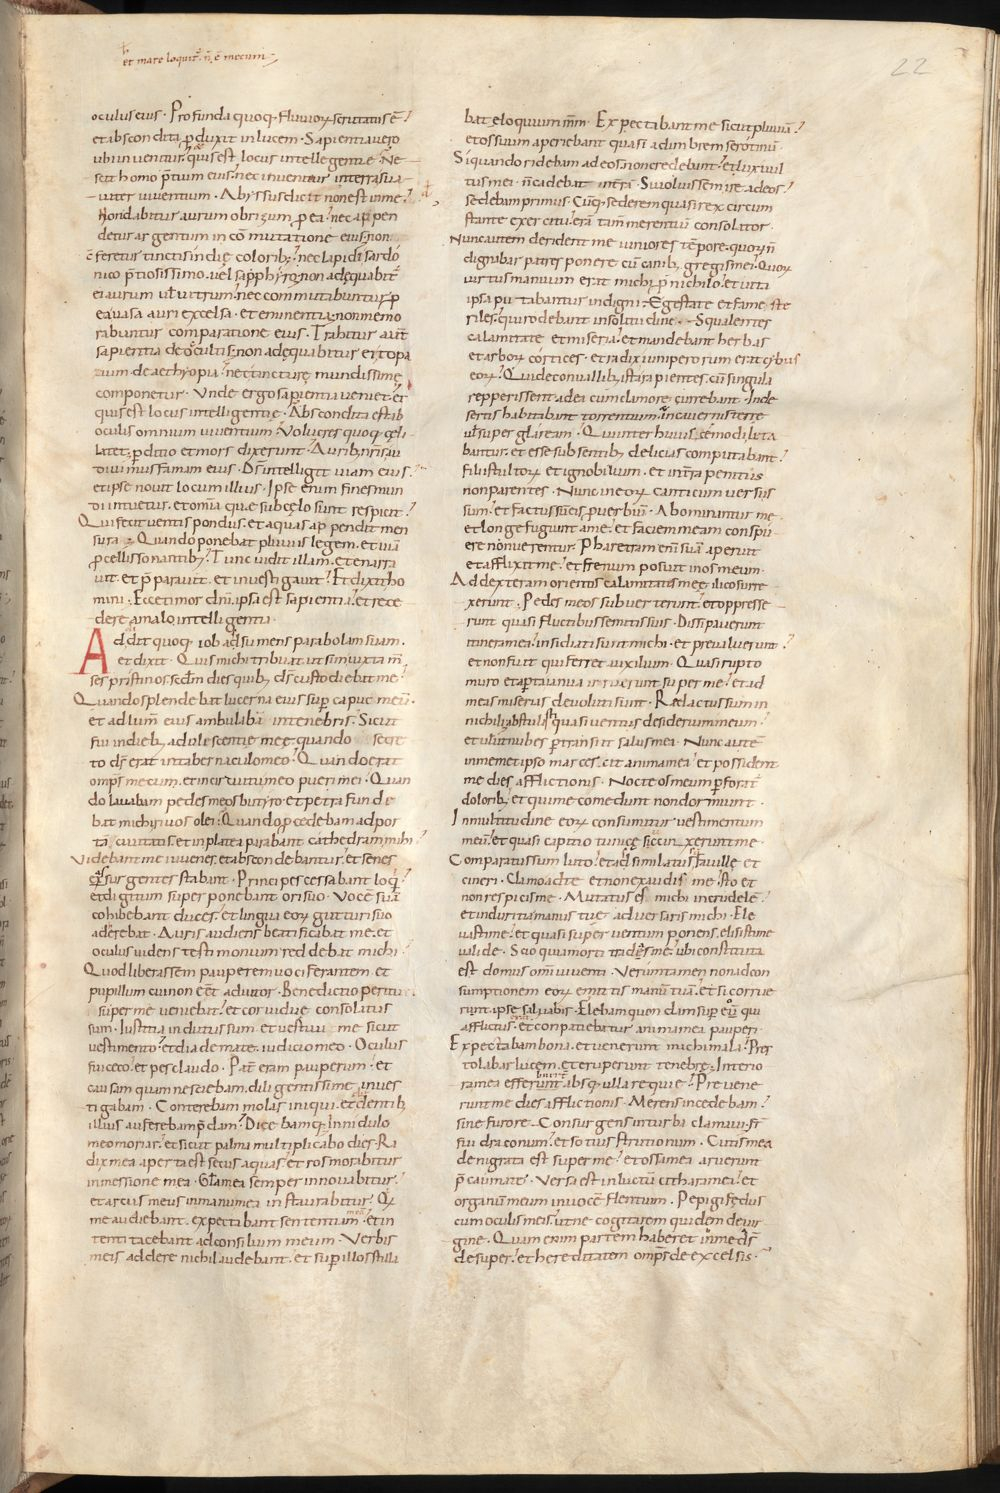 et mare loquit̄ n̄ ē mecum
22
oculus eius · Profunda quoq· fluuiorꝝ scrutatus ē
et abscondita ꝓduxit in lucem · Sapientia uero
ubi inuenitur? quis est locus intellegentie · Ne
scit homo p̄tium eius? nec inuenitur in terra sua
uiter uiuentium · Abyssus dicit non est in me?
Non dabitur aurum obrizum ꝓ ea? nec appen
detur argentum in cōmutatione eius. non
feretur tinctis indie colorib;? nec lapidi sardo
nico p̄tiosissimo. uel sapphyro; non adęquabit̄
ei aurum ul̄ uitrum? nec commutabuntur ꝓ
ea uasa auri excelsa · et eminentia; non memo
rabuntur comparatione eius · Trahitur aut̄
sapientia de occultis; non adęquabitur ei topa
zium de aethyopia? nec tincturę mundissimę
componetur · Unde ergo sapientia ueniet? et
quis est locus intelligentie · Abscondita est ab
oculis omnium uiuentium? Volucres quoq· cęli
latet? ꝑditio et mors dixerunt · Aurib; nr̄is au
diuimus famam eius · Ds̄ intelligit uiam eius?
et ipse nouit locum illius · Ipse enim fines mun
di intuetur? et omnia quę sub cęlo sunt respicit?
Qui fecit uentis pondus? et aquas appendit men
sura · Quando ponebat pluuiis legem. et uiā
ꝓcellis sonantib;? Tunc uidit illam. et enarra
uit. et p̄parauit. et inuestigauit? Et dixit ho
mini · Ecce timor dn̄i. ipsa est sapientia? et rece
dere a malo intelligentia
Addidit quoq· iob adsumens parabolam suam.
et dixit · Quis michi tribuat. ut sim iuxta m̄
ses pristinos; sc̄dm dies quib; ds̄ custodiebat me?
Quando splendebat lucerna eius sup̄ caput meū.
et ad lum̄ eius ambulabā in tenebris? Sicut
fui in dieb; adulescentie meę. quando secre
to ds̄ erat in tabernaculo meo? Quando erat
omp̄s mecum. et in circuitu meo pueri mei · Quan
do lauabam pedes meos butyro. et petra funde
bat michi riuos olei · Quando ꝓcedebam ad por
tā ciuitatis. et in platea parabant cathedram mihi?
Videbant me iuuenes. et abscondebantur. et senes
assurgentes stabant · Principes cessabant loqui
et digitum superponebant ori suo · Vocē suā
cohibebant duces? et lingua eorꝝ gutturi suo
adherebat · Auris audiens beatificabat me. et
oculus uidens testimonium reddebat michi
Quod liberassem pauperem uociferantem. et
pupillum cui non eēt adiutor · Benedictio perituri
super me ueniebat? et cor uiduę consolatus
sum · Iustitia indutus sum · et uestiui me sicut
uestimento? et diademate. iudicio meo · Oculus
fui ceco? et pes claudo · Pat̄ eram pauperum · et
causam quam nesciebam. diligentissime inues
tigabam · Conterebam molas iniqui. et de dentib;
illius auferebam p̄dam? Dicebamq· In nidulo
meo moriar? et sicut palma multiplicabo dies · Ra
dix mea aperta est secus aquas? et ros morabitur
in messione mea · Gl̄a mea semper innouabitur?
et arcus meus in manu mea instaurabitur · Qui
me audiebant. expectabant sententiam meā? et in
tenti tacebant ad consilium meum · Verbis
meis addere nichil audebant. et sup̄ illos stilla
bat eloquium meum · Expectabant me sicut pluuiā?
et os suum aperiebant quasi ad imbrem serotinū
Siquando ridebam ad eos. non credebant? et lux uul
tus mei n̄ cadebat in terrā · Si uoluissem ire ad eos?
sedebam primus · Cūq· sederem quasi rex circum
stante exercitu? erā tam̄ merentium consolator
Nunc autem derident me iuniores tēpore. quorꝝ n̄
dignabar patres ponere cū canib; gregis mei? Quorꝝ
uirtus manuum erat michi ꝓ nichilo? et uita
ipsa putabantur indigni · Egestate et fame ste
riles. qui rodebant in solitudine · Squalentes
calamitate et miseria? et mandebant herbas
et arborꝝ córtices · et radix iuniperorum erat cybus
eorꝝ? Qui de conuallib; ista rapientes. cū singula
repperissent. ad ea cum clamore currebant · In de
sertis habitabant torrentium? in cauernis terre
ul̄ super glaream · Qui inter huiuscemodi lęta
bantur. et esse sub sentib; delicias computabant?
Filii stultorꝝ et ignobilium. et in terra penitus
non parentes · Nunc in eorꝝ canticum uersus
sum. et factus sum eis ꝓuerbiū · Abominantur me
et longe fugiunt a me? et faciem meam conspu
ere non uerentur · Pharetram eni suam aperuit
et afflixit me? et frenum posuit in os meum ·
Ad dexteram orientis calamitatis meę. ilico surre
xerunt · Pedes meos subuerterunt? et oppresse
runt quasi fluctibus semitis suis · Dissipauerunt
itinera mea? insidiati sunt michi · et preualuerunt
et non fuit qui ferret auxilium · Quasi rupto
muro et aperta ianua irruerunt super me? et ad
meas miserias deuoluti sunt · Redactus sum in
nichilū abstulisti quasi uentus desiderium meum
et uelut nubes ꝑtransiit salus mea · Nunc autē
in memetipso marcescit anima mea? et possident
me dies afflictionis · Nocte os meum ꝑforat̄
dolorib; et qui me comedunt non dormiunt ·
In multitudine eorꝝ consumitur uestimentum
meū? et quasi capitio tunicę succinxerunt me ·
Comparatus sum luto? et adsimilatus fauillę et
cineri · Clamo ad te et non exaudis me? sto et
non respicis me · Mutatus es michi in crudelē?
et in duritia manus tuę aduersaris michi · Ele
uasti me? et quasi super uentum ponens. elisisti me
ualide · Scio quia morti trades me? ubi constituta
est domus omni uiuenti · Veruntamen non ad con
sumptionem eorꝝ emittis manū tuā? et si corrue
rint ipse saluabis · Flebam quondam sup̄ eū qui
afflictus erat. et conpatiebatur anima mea pauperi ·
Expectabam bona. et uenerunt michi mala? Pres
tolabar lucem. et eruperunt tenebre; Interio
ra mea efferbuerunt absq· ulla requie? Preuene
runt me dies afflictionis · Merens incedebam?
sine furore · Consurgens in turba clamaui · Fr̄
fui draconum? et sotius strutionum · Cutis mea
denigrata est super me? et ossa mea aruerunt
p̄ caumate · Versa est in luctū cithara mea? et
organum meum in uocē flentium · Pepigi fędus
cum oculis meis. ut ne cogitarem quidem de uir
gine · Quam enim partem haberet in me ds̄
desuper? et hereditatem omp̄s de excelsis ·